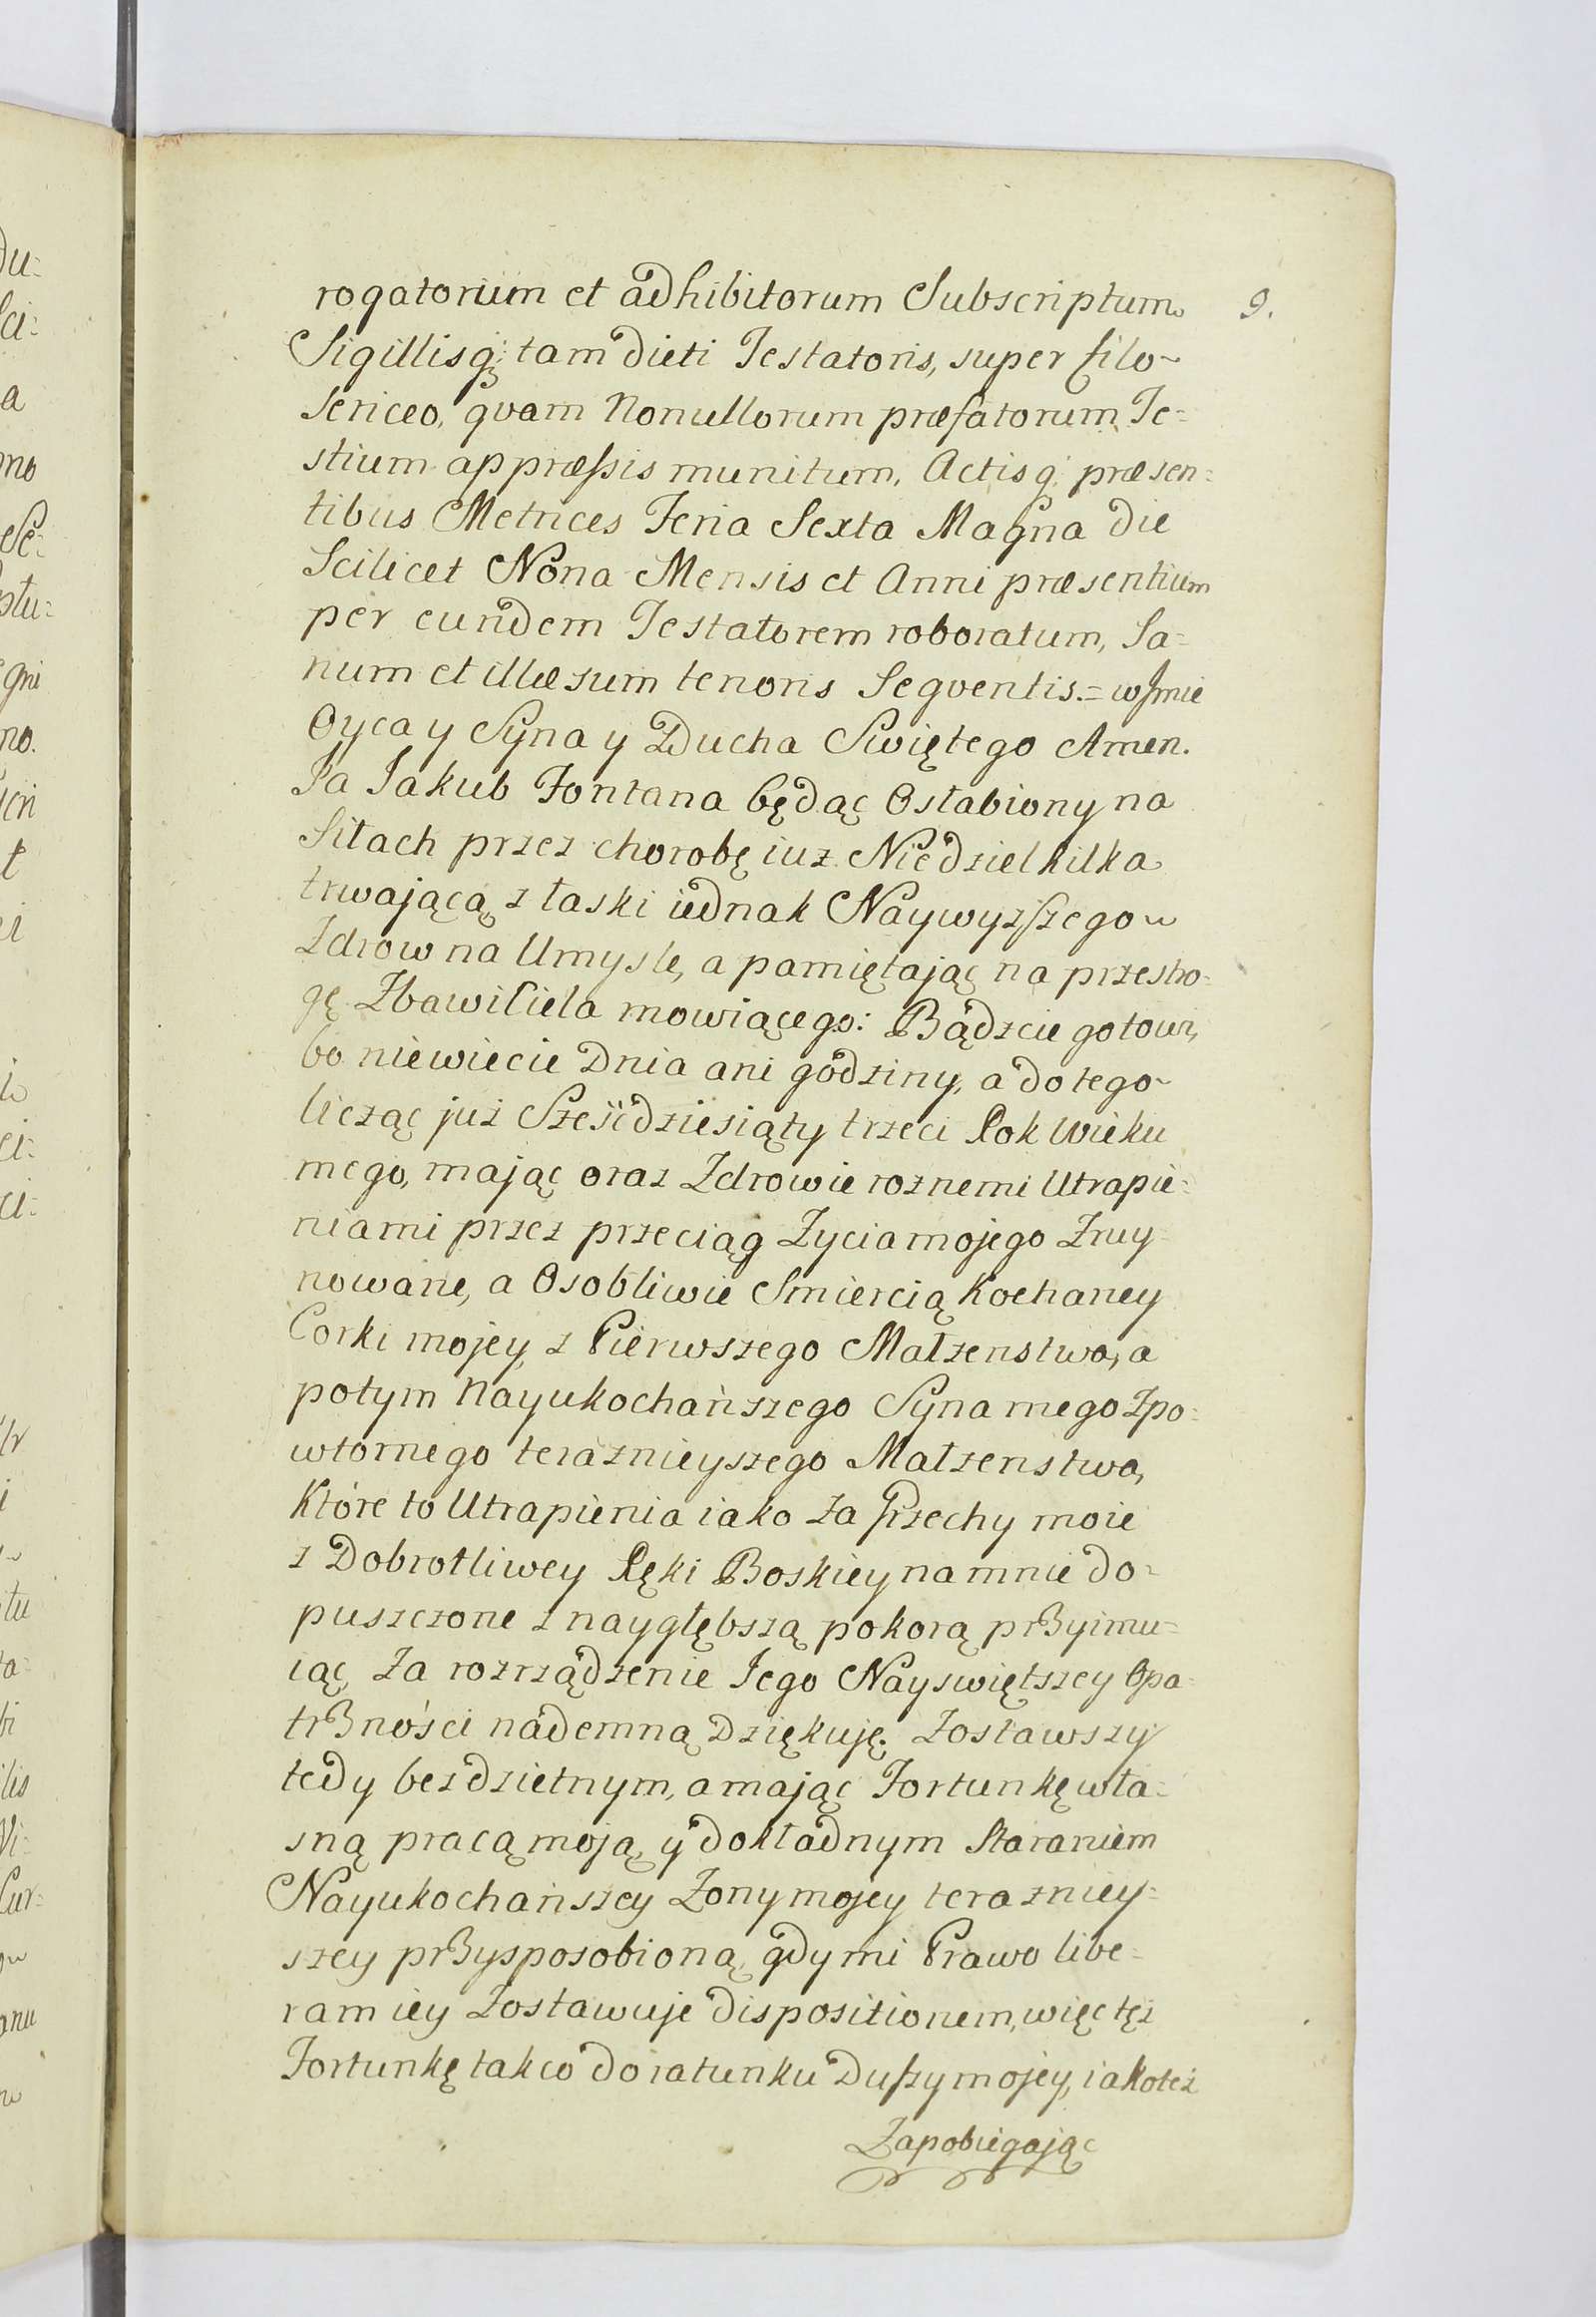 9.
rogatorium et adhibitorum Subscriptum
Sigillisq; tam dicti Testatoris, super filo
Sericeo, qvam Nonullorum præfatorum Te=
stium appræssis munitum, Actisq; præsen=
tibus Metrices Feria Sexta Magna die
Scilicet Nona Mensis et Anni præsentium
per eundem Testatorem roboratum, Sa=
num et illæsum tenoris Seqventis.= w Jmie
Oyca y Syna y Ducha Swiętego Amen.
Ja Jakub Fontana będąc Osłabiony na
Siłach przez chorobę iuz Niedziel kilka
trwającą z łaski iednak Naywyzszego
Zdrow na Umysle, a pamiętając na przestro=
gę Zbawiciela mowiącego: Bądzcie gotowi,
bo niewiecie Dnia ani godziny, a do tego
licząc już Sześćdziesiąty trzeci Rok Wieku
mego, mając oraz Zdrowie roznemi Utrapie=
niami przez przeciąg Zycia mojego Zruy=
nowane, a Osobliwie Smiercią Kochaney
Corki mojey z Pierwszego Małzenstwa, a
potym Nayukochańszego Syna mego z po=
wtornego teraznieyszego Małzenstwa,
Które to Utrapienia iako za Grzechy moie
z Dobrotliwey Ręki Boskiey na mnie do=
puszczone z naygłębszą pokorą przyimu=
iąc, za rozrządzenie Jego Nayswiętszey Opa=
trzności nademną Dziękuję. Zostawszy
tedy bezdzietnym, a mając Fortunkę wła=
sną pracą moją, y dokładnym Staraniem
Nayukochańszey Zony mojey terazniey=
szey przysposobioną, gdy mi Prawo libe=
ram iey Zostawuje dispositionem, więc tęz
Fortunkę tak co do ratunku Duszy mojey, iako też
Zapobiegając